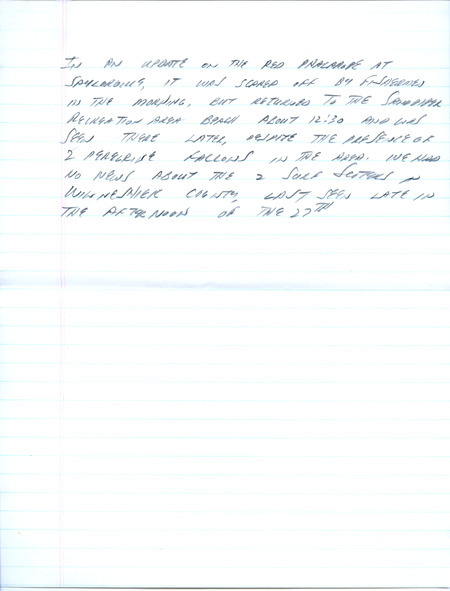 IN AN UPDATE ON THE RED PHALAROPE AT
SAYLORVILLE, IT WAS SCARED OFF BY FISHERMEN
IN THE MORNING, BUT RETURNED TO THE SANDPIPER
RECREATION AREA BEACH ABOUT 12:30 AND WAS
SEEN THERE LATER, DESPITE THE PRESENCE OF
2 PEREGRINE FALCONS IN THE AREA. WE HAD
NO NEWS ABOUT THE 2 SURF SCOTERS IN
WINNESHIEK COUNTY, LAST SEEN LATE IN
THE AFTERNOON OF THE 27TH